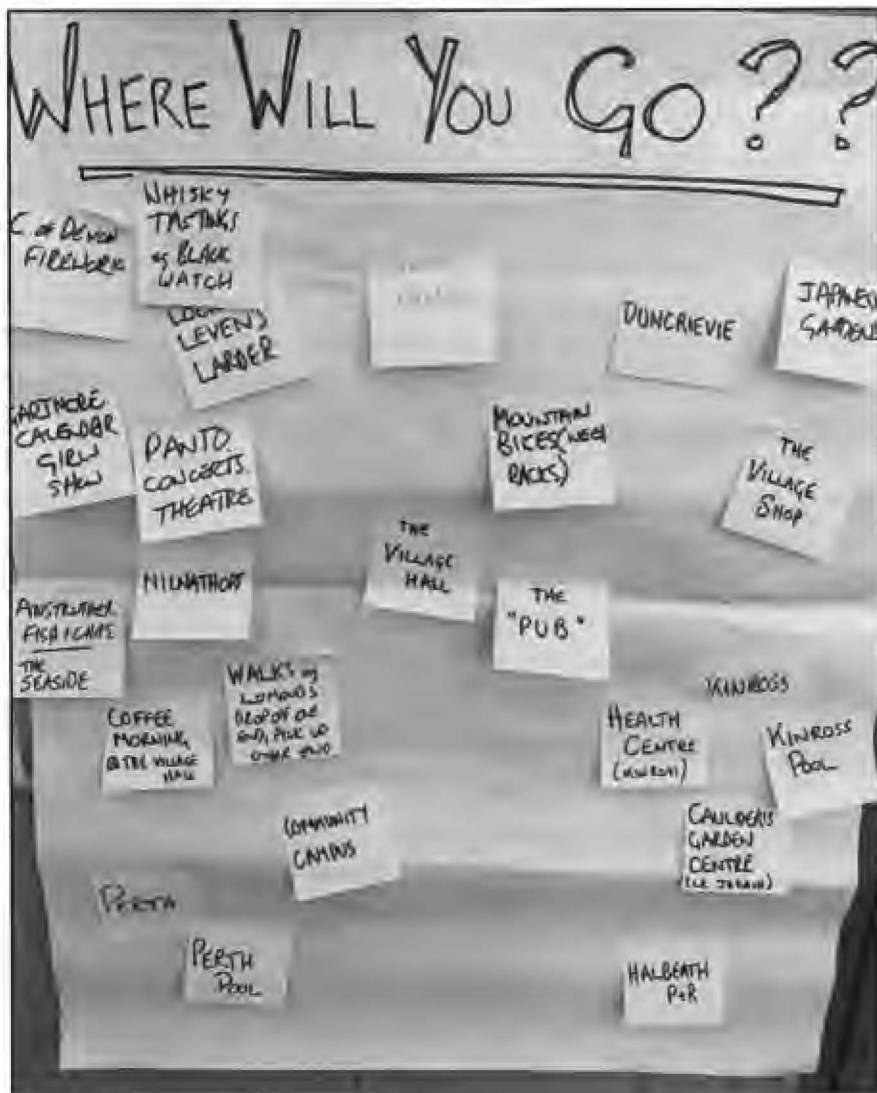 WHERE WILL YOU GO??
C. of DEVON
WHISKY
TASTINGS
eg BLACK
WATCH
LEVEN'S
LARDER
DUNCRIEVIE
JAPANESE
GARDENS
CALENDAR
GIRLS
SHOW
PANTO
CONCERTS
THEATRE
MOUNTAIN
BIKES (NEED
RACKS)
THE
VILLAGE
SHOP
THE
VILLAGE
HALL
MILNATHORT
THE
"PUB"
ANSTRUTHER
FISH & CHIPS
THE
SEASIDE
WALKS eg
LOMONDS
DROP OFF ONE
END, PICK UP
OTHER END
COFFEE
MORNING
@ THE VILLAGE
HALL
KINROSS
HEALTH
CENTRE
(KINROSS)
KINROSS
POOL
COMMUNITY
CAMPUS
CAULDERS
GARDEN
CENTRE
PERTH
PERTH
POOL
HALBEATH
P+R